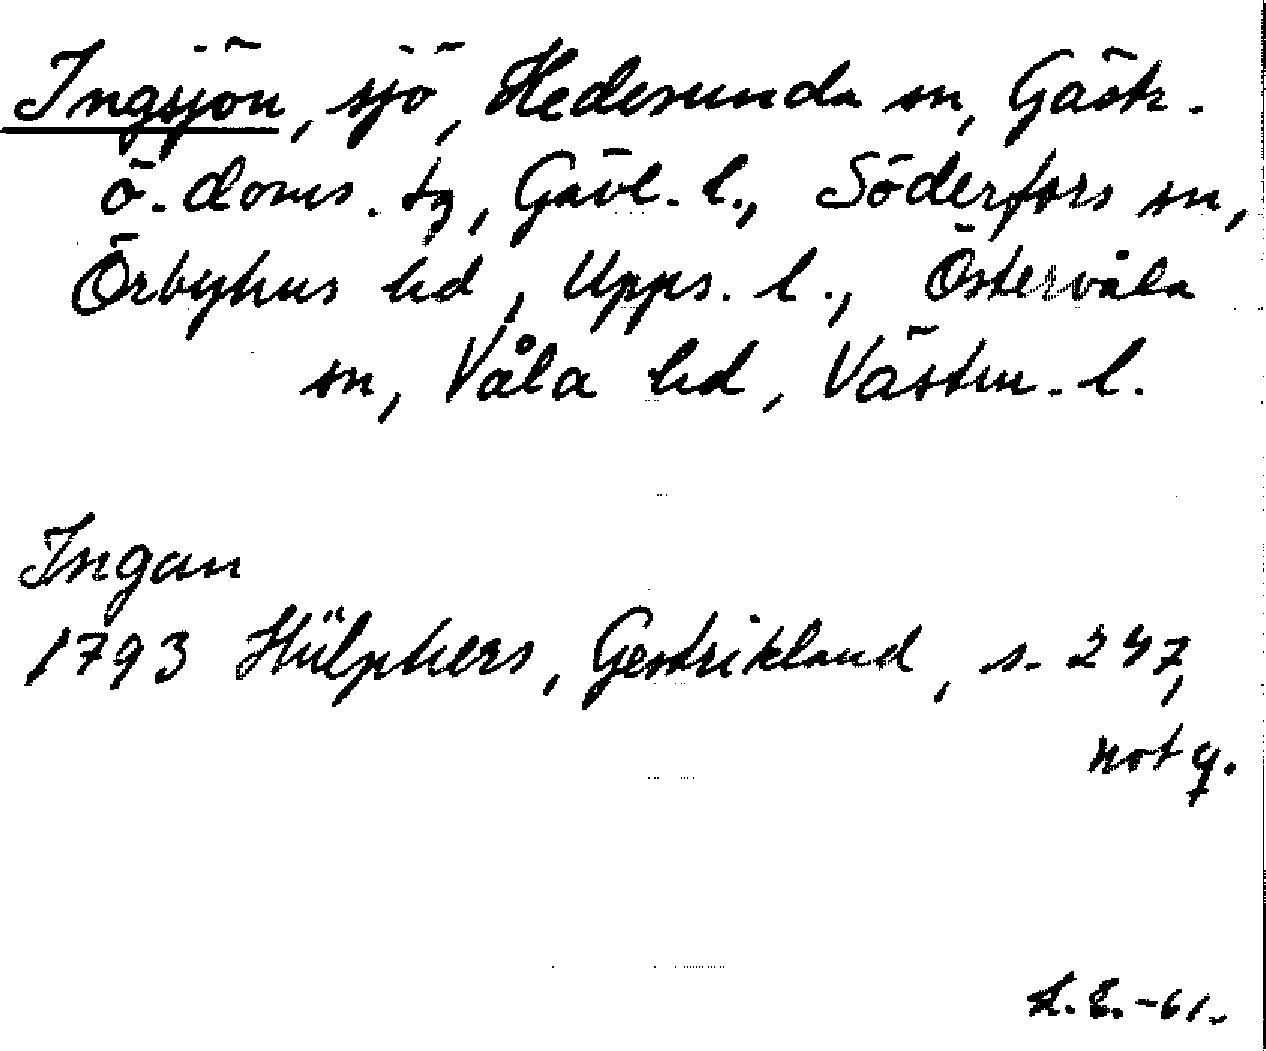 Ingsjön, sjö, Hedesunda sn, Gästr.
ö. doms. tg, Gävl. l., Söderfors sn,
Örbyhus hd, Upps. l., Östervåla
sn, Våla hd, Västm. l.
Ingan
1793 Hülphers, Gestrikland, s. 247,
not q.